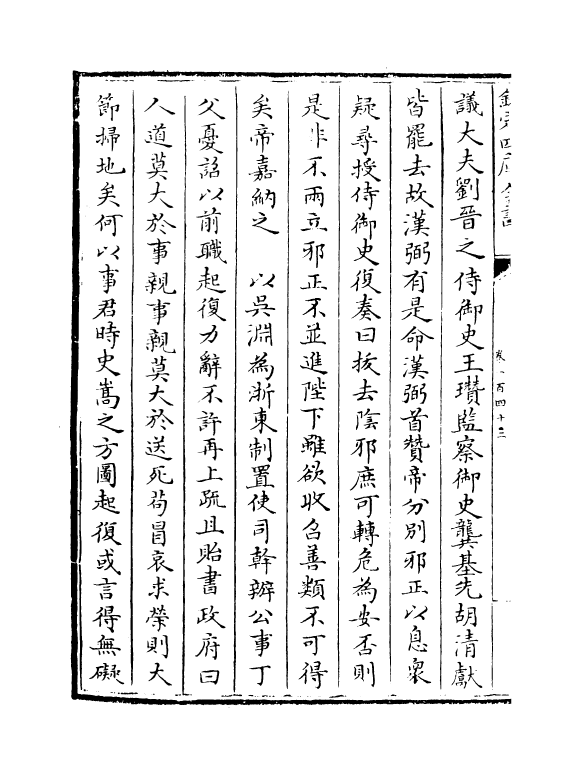 欽定四庫全書
卷一百四十三
議大夫劉晉之侍御史王瓚監察御史龔基先胡清獻
皆罷去故漢弼有是命漢弼首贊帝分別邪正以息衆
疑尋授侍御史復奏曰拔去陰邪庶可轉危為安否則
是非不兩立邪正不並進陛下雖欲收召善類不可得
矣帝嘉納之　以吳淵為浙東制置使司幹辦公事丁
父憂詔以前職起復力辭不許再上疏且貽書政府曰
人道莫大於事親事親莫大於送死苟冒哀求榮則大
節掃地矣何以事君時史嵩之方圖起復或言得無礙